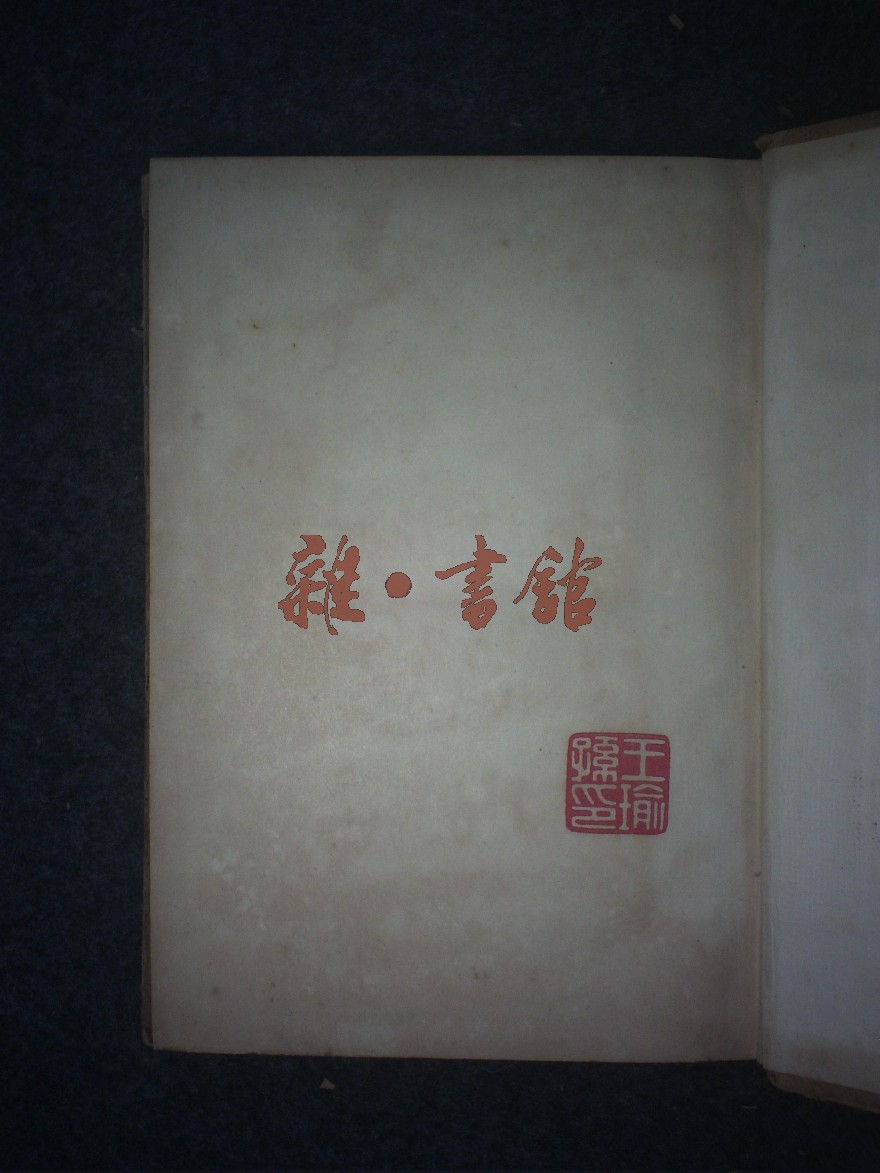 雜·書館
王瑜
孫印